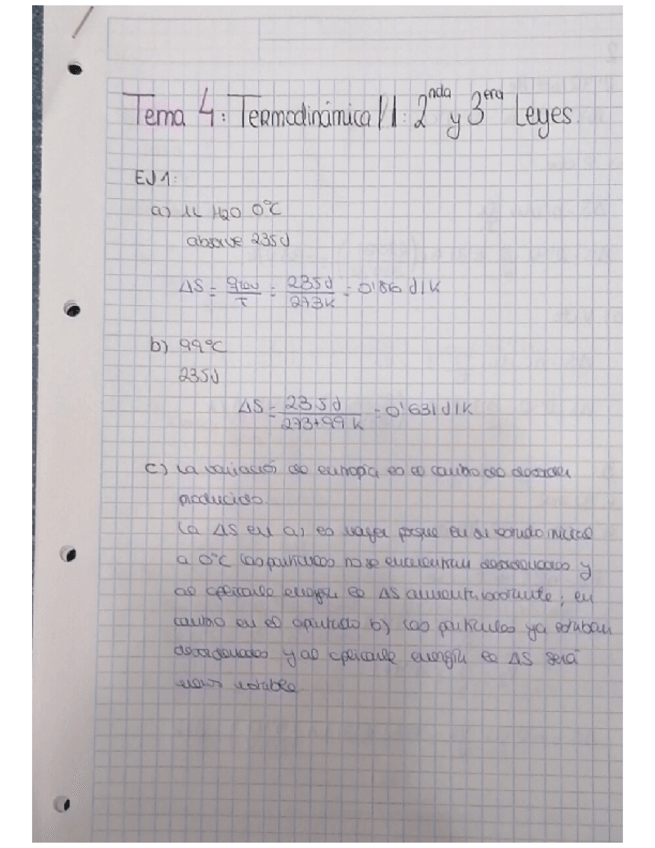 Tema 4: Termodinámica II: 2nda y 3era Leyes.
EJ 1:
a) 1L H2O 0°C
absorve 235J
ΔS = qrev/T = 235J/273K = 0'86 J/K
b) 99°C
235J
ΔS = 235J/273+99K = 0'631 J/K
c) La variación de entropía es el cambio de desorden
producido.
La ΔS en a) es mayor porque en su estado inicial
a 0°C las partículas no se encuentran desordenadas y
al aplicarle energía el ΔS aumenta bastante; en
cambio en el apartado b) las partículas ya estaban
desordenadas y al aplicarle energía el ΔS será
menos notable